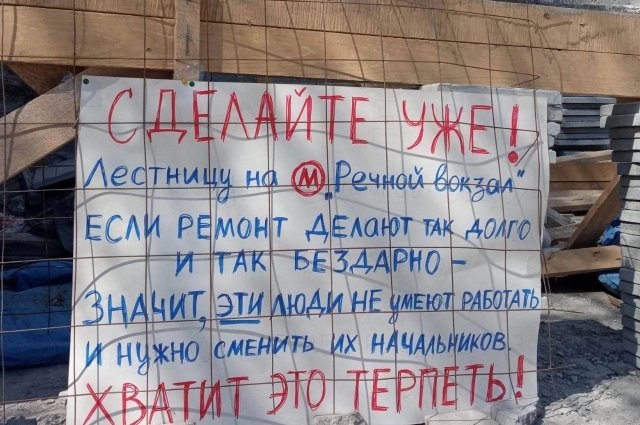 СДЕЛАЙТЕ УЖЕ!
Лестницу на М "Речной вокзал"
ЕСЛИ РЕМОНТ ДЕЛАЮТ ТАК ДОЛГО
И ТАК БЕЗДАРНО –
ЗНАЧИТ, ЭТИ ЛЮДИ НЕ УМЕЮТ РАБОТАТЬ
И НУЖНО СМЕНИТЬ ИХ НАЧАЛЬНИКОВ.
ХВАТИТ ЭТО ТЕРПЕТЬ!